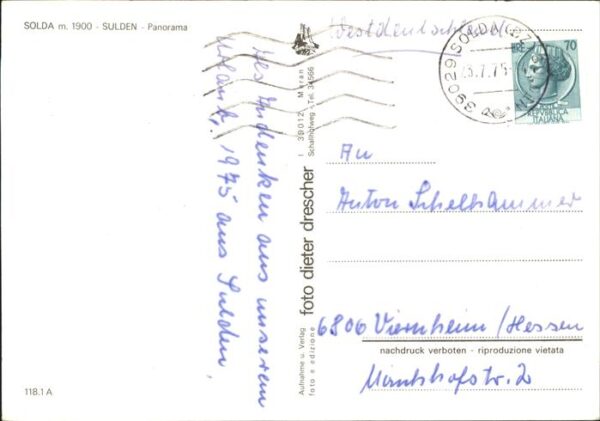 SOLDA m. 1900 - SULDEN - Panorama
Westdeutschland
39029 SOLDA (BZ)
70
REPVBBLICA
ITALIANA
Urlaub, 1975 aus Sulden,
Als Andenken aus unserem
foto dieter drescher
I 39012 Meran
Schallhofweg - Tel. 34566
Aufnahme u. Verlag
foto e edizione
An
Anton Schelhammer
6806 Viernheim/Hessen
nachdruck verboten - riproduzione vietata
118.1 A